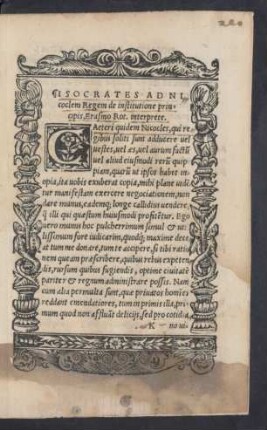 ¶ISOCRATES AD NI
coclem Regem de institutione prin
cipis, Erasmo Rot. interprete.
CAeteri quidem Nicocles, qui re
gibus soliti sunt adducere uel
uestes, uel æs, uel aurum factū
uel aliud eiusmodi rerū quip
piam, quarū ut ipsos habet in
opia, ita uobis exuberat copia, mihi plane uiden
tur manifestam exercere negociationem, non
dare munus, eademq; longe callidius uendere,
q̃ illi qui quæstum huiusmodi profitētur. Ego
uero munus hoc pulcherrimum simul & uti
lissimum fore iudicarim, quodq; maxime dece
at tum me donare, tum te accipere, si tibi ratio
nem queam præscribere, quibus rebus expeten
dis, rursum quibus fugiendis, optime ciuitatē
pariter & regnum administrare possis. Nam
cum alia permulta sunt, quæ priuatos homines
reddant emendatiores, tum in primis illa, pri
mum quod non affluāt delicijs, sed pro cotidia
K no ui